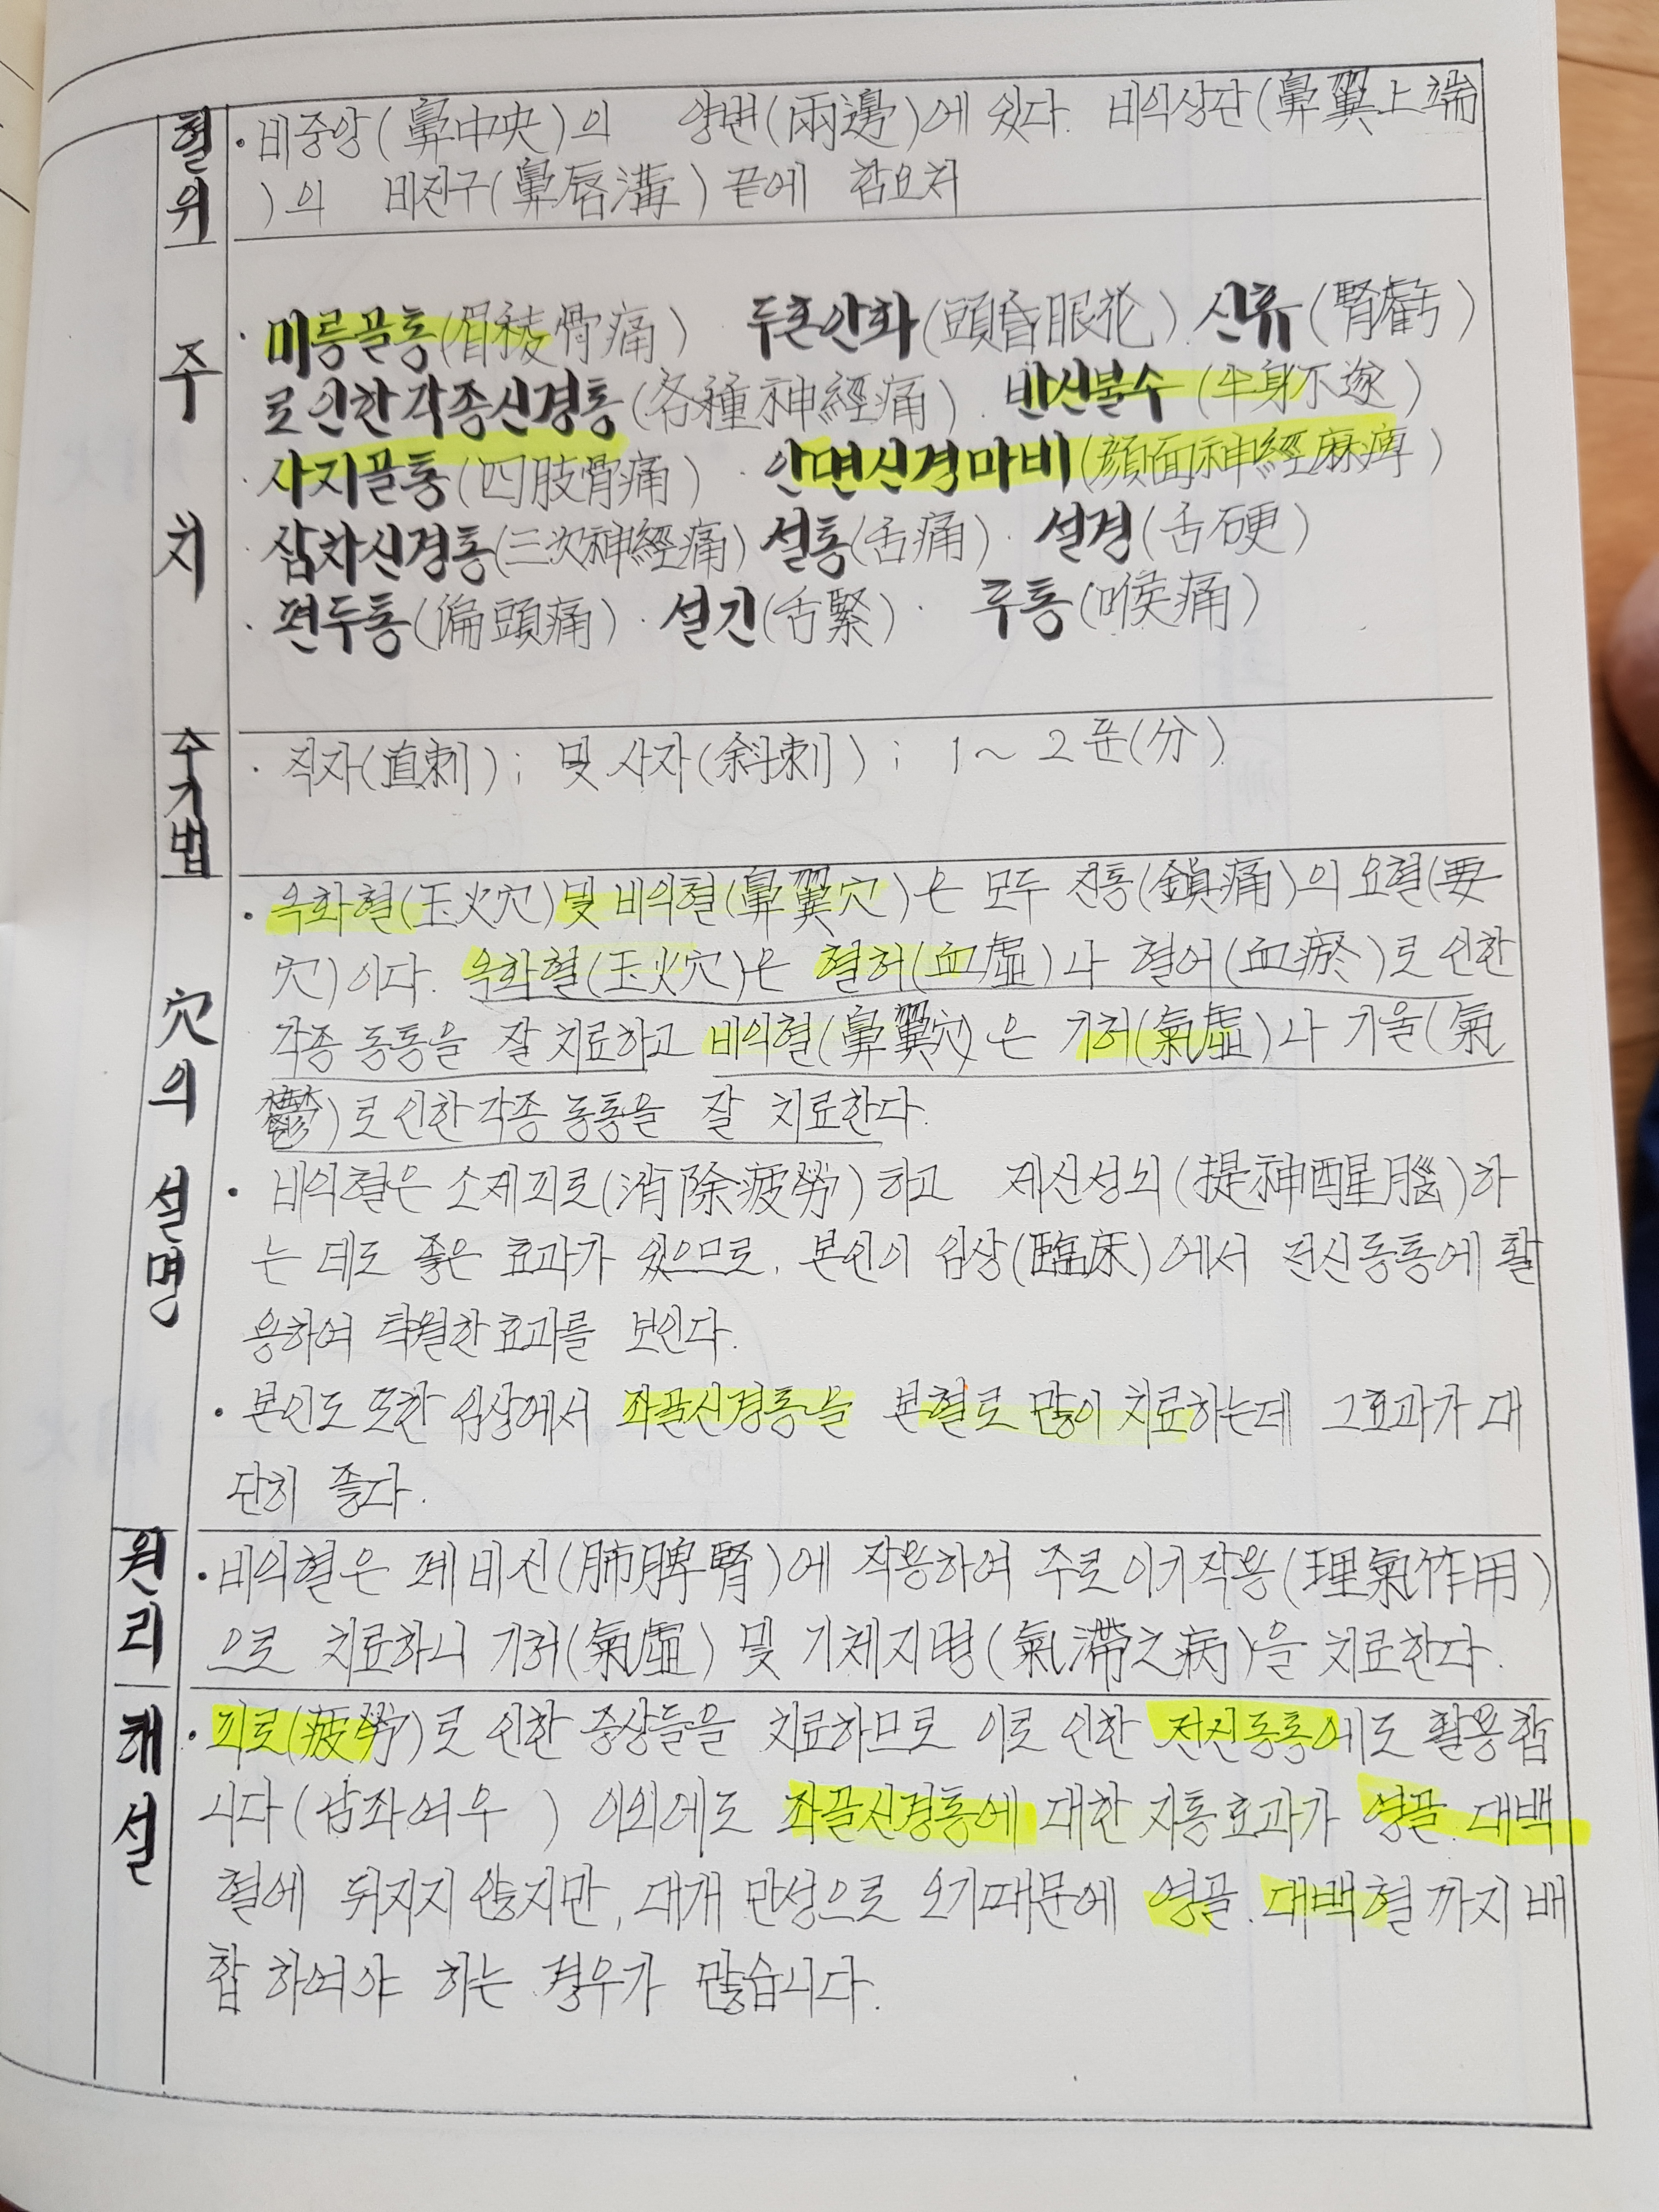 혈위
· 비중앙(鼻中央)의 양변(兩邊)에 있다. 비익상단(鼻翼上端
)의 비진구(鼻唇溝) 끝에 함요처
주치
· 미릉골통(眉稜骨痛) · 두혼안화(頭昏眼花) 신휴(腎虧)
로인한각종신경통(各種神經痛) · 반신불수(半身不遂)
· 사지골통(四肢骨痛) · 안면신경마비(顔面神經麻痺)
· 삼차신경통(三次神經痛) 설통(舌痛) · 설경(舌硬)
· 편두통(偏頭痛) · 설긴(舌緊) · 후통(喉痛)
수기법
· 직자(直刺); 및 사자(斜刺); 1~2푼(分)
穴의 설명
· 옥화혈(玉火穴)및 비익혈(鼻翼穴)은 모두 진통(鎭痛)의 요혈(要
穴)이다. 옥화혈(玉火穴)은 혈허(血虛)나 혈어(血瘀)로 인한
각종 동통을 잘 치료하고 비익혈(鼻翼穴)은 기허(氣虛)나 기울(氣
鬱)로 인한 각종 동통을 잘 치료한다.
· 비익혈은 소제피로(消除疲勞)하고 제신성뇌(提神醒腦)하
는 데도 좋은 효과가 있으므로, 본인이 임상(臨床)에서 전신동통에 활
용하여 탁월한 효과를 보인다.
· 본인도 또한 임상에서 좌골신경통을 본혈로 많이 치료하는데 그효과가 대
단히 좋다.
원리
· 비익혈은 폐비신(肺脾腎)에 작용하여 주로 이기작용(理氣作用)
으로 치료하니 기허(氣虛) 및 기체지병(氣滯之病)을 치료한다.
해설
· 피로(疲勞)로 인한 증상들을 치료하므로 이로 인한 전신동통에도 활용합
니다(남좌여우 ) 이외에도 좌골신경통에 대한 지통효과가 영골.대백
혈에 뒤지지 않지만, 대개 만성으로 오기때문에 영골.대백혈까지 배
합 하여야 하는 경우가 많습니다.